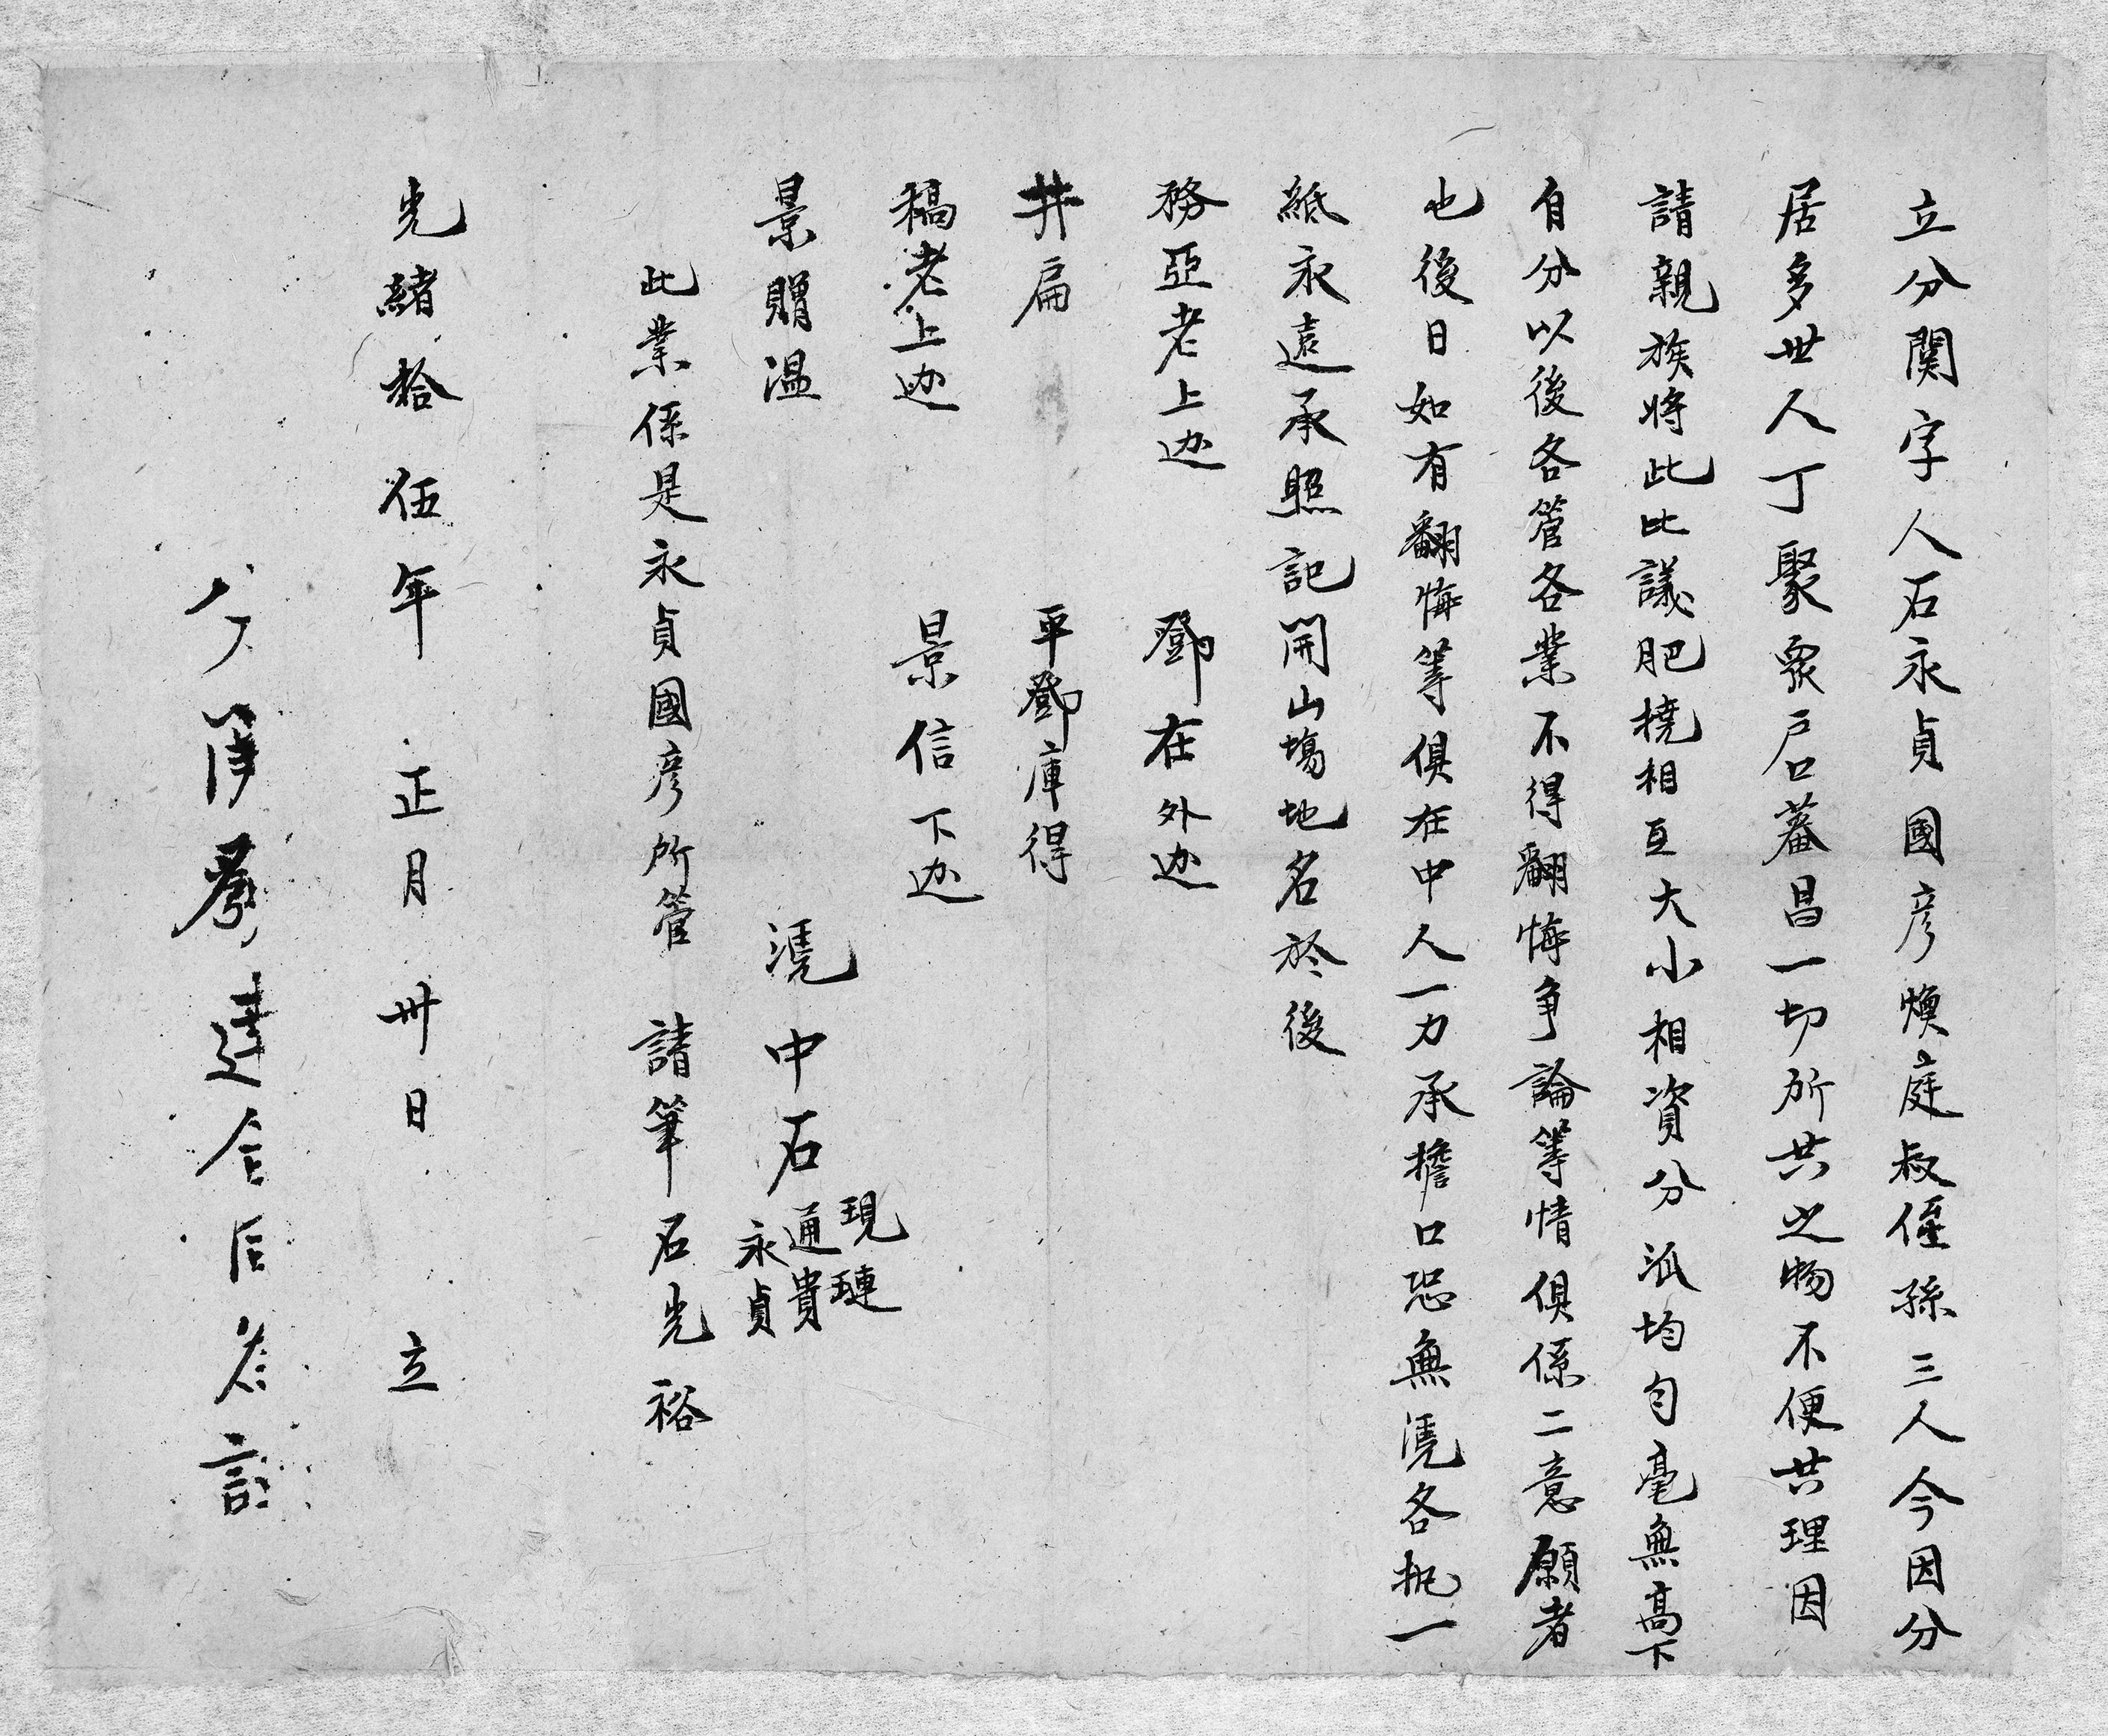 立分関字人石永貞國彦煥庭叔侄孫三人今因分
居多世人丁聚衆戶蕃昌一切所共之物不便共理因
請親族將此比議肥撓相亙大小相資分派均匀毫無高下
自分以後各管各業不得翻悔爭論等情俱係二意願者
也後日如有翻悔等俱在中人一力承擔口恐無凴各執一
紙永遠承照記開山塲地名於後
務亞老上边 鄧在外边
井扁 平鄧庫得
稿老上边 景信下边
景贈温 凴中石現璉 通貴 永貞
此業係是永貞國彦所管 請筆石光裕
光緒拾伍年正月卅日 立